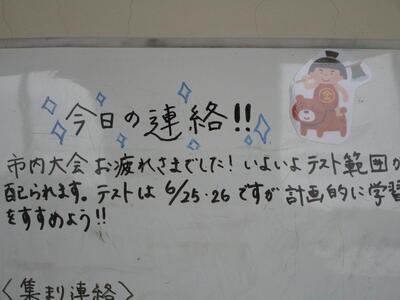 今日の連絡!!
金
市内大会お疲れさまでした!いよいよテスト範囲が
配られます。テストは6/25・26ですが計画的に学習
をすすめよう!!
〈集まり連絡〉